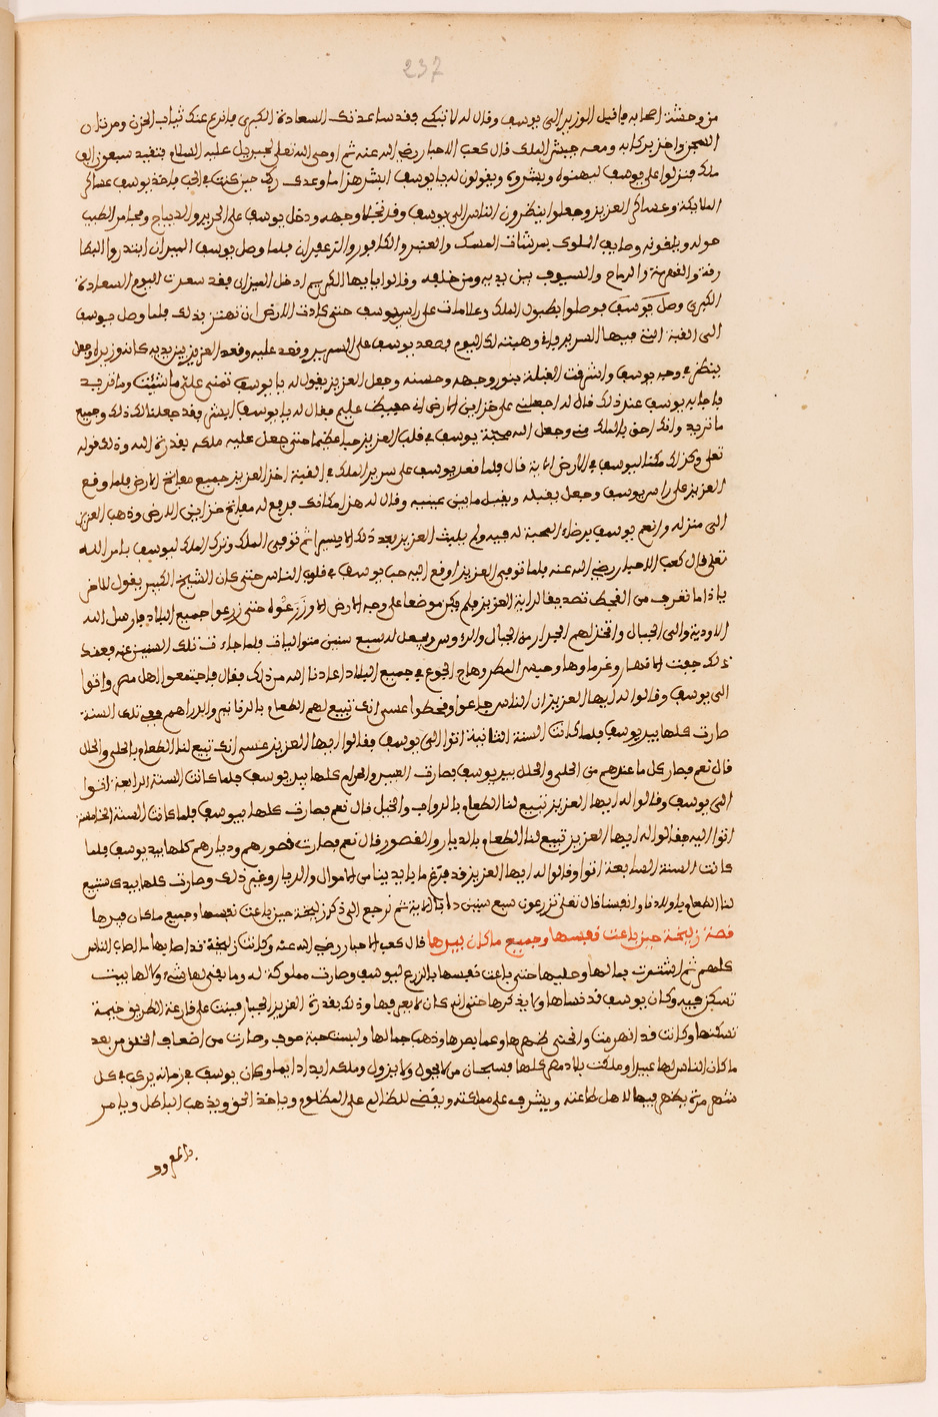 237
من وحشة اصحابه فاقبل الوزير الى يوسف وقال له لا تبكي فقد ساعدتك السعادة الكبرى فانزع عنك ثياب الحزن
السجن واخذ بركابه ومعه جيش الملك قال كعب الاحبار رضي الله عنه ثم اوحى الله تعلى لجبريل عليه السلام سبعون الف
ملك فنزلوا على يوسف ليهنوه ويبشروه ويقولون له يا يوسف ابشر هذا ما وعدك ربك حين كنت في الجب يوسف عساكر
الملايكة وعساكر العزيز وجعلوا ينظرون الناس الى يوسف وقد وجهه ودخل يوسف على الحرير والديباج ومجامر الطيب
حوله ويلقونه وصايف الملوك بمرشات المسك والعنبر والكافور والزعفران فلما وصل يوسف الميدان ابتدروا البطا
رقة والقهرمة والرماح والسيوف بين يديه ومن خلفه وقالوا يا يها الكريم ادخل الميدان فقد سعدت اليوم السعادة
الكبرى وصل يوسف بطبول الملك وعلامات على راس يوسف حتى كادت الارض ان تهتز بذلك فلما وصل يوسف
الى القبة التي فيها السرير وهيئته لك اليوم فصعد يوسف على السرير وقعد عليه وقعد العزيز بين يديه كانه وزيراه وجعل
ينظر في وجه يوسف واشرقت القبة بنور وجهه وحسنه وجعل العزيز يقول له يا يوسف تمنى علي ما شئت وما تريد
فاجابه يوسف عند ذلك قال له اجعلني على خزاين الارض اني حفيظ عليم فقال له يا يوسف ابشر فقد جعلنا لك ذلك وجميع
ما تريد وانك احق بالملك مني وجعل الله محبة يوسف في قلب العزيز حبا عظيما حتى جعل عليه ملكه بقدرة الله وذلك قوله
تعلى وكذلك مكنا ليوسف في الارض الاية قال فلما قعد يوسف على سرير الملك في القبة اخذ العزيز جميع مفاتح الارض فلما وقع
العزيز على راس يوسف وجعل يقبله ويقبل ما بين عينيه وقال له هذا مكانك فدفع له مفاتح خزاين الارض وذهب العزيز
الى منزله وانعم يوسف برضاء المحبة له فيه ولم يلبث العزيز بعد ذلك الا يسيرا ثم توفى الملك وترك الملك ليوسف بامر الله
تعلى قال كعب الاحبار رضي الله عنه فلما توفى العزيز اوقع اليه حب يوسف في قلوب الناس حتى كان الشيخ الكبير يقول للاخر
يا ذا ما تعرف من القحط تصديقا لراية العزيز فلم يكن موضعا على وجه الارض الا وزرعوه حتى زرعوا جميع البلاد فارسل الله
الاودية والى الجبال واتخذ لهم من الجبال ولم يجعل له سبع سنين متواليات فلما جاءت تلك السنين
ذلك جفت الانهار وغرماوها وحبس المطر وهاج الجوع في جميع البلاد اعاذنا الله من ذلك فقال فاجتمعوا اهل مصر واتوا
الى يوسف وقالوا له ايها العزيز ان الناس جاعوا وقحطوا عسى انك تبيع لهم الطعام بالدنانير والدراهم ففي تلك السنة
صارت كلها بيد يوسف فلما كانت السنة الثانية اتوا الى يوسف فقالوا ايها العزيز عسى انك تبيع لنا الطعام بالحلي والحلل
قال نعم فصار كل ما عندهم من الحلي والحلل بيد يوسف فصارت العبيد والحرام كلها بيد يوسف فلما كانت السنة الرابعة اتوا
الى يوسف وقالوا له ايها العزيز تبيع لنا الطعام بالدواب والخيل قال نعم فصارت كلها بيوسف فلما كانت السنة الخامسة
اتوا اليه فقالوا له ايها العزيز تبيع لنا الطعام بالديار والقصور قال نعم فصارت قصورهم وديارهم كلها بيد يوسف فلما
كانت السنة السابعة اتوا وقالوا له ايها العزيز قد فرغ ما بايدينا من الاموال والديار وغير ذلك وصارت كلها بيدك فتبيع
لنا الطعام باولادنا وانفسنا قال تعلى تزرعون سبع سنين دابا الاية ثم نرجع الى ذكر زليخة حين باعت نفسها وجميع ما كان بيدها
قصة زليخة حين باعت نفسها وجميع ما كان بيدها قال كعب الاحبار رضي الله عنه وكانت زليخة قد اصابها ما اصاب الناس
كلهم ثم اشترت بمالها وحليها حتى باعت نفسها بالزرع ليوسف وصارت مملوكة له وما بقى لها شيء ولا لها بيت
تسكن فيه وكان يوسف قد نساها ولا يذكرها حتى انه كان لا يعرفها وذلك بقدرة العزيز الجبار فبنت على قارعة الطريق خيمة
تسكنها وكانت قد انهرمت وانحنى ظهرها وعما بصرها وذهب جمالها ولبست جبة صوف وصارت من اضعاف الخلق من بعد
ما كان الناس لها عبيدا وملكت بلاد مصر كلها فسبحان من لا يحول ولا يزول وملكه ابدا دايما وكان يوسف في زمانه يركب في كل
شهر مرة يظهر فيها لاهل طاعته ويشرف على مملكته ويقضي للظالم على المظلوم وياخذ الحق ويذهب الباطل ويامر